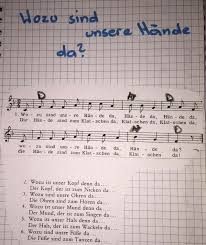 Wozu sind
unsere Hände
da?
D A D
1. Wo - zu sind uns - re Hän - de da, Hän - de da, Hän - de da,
Die Hän - de sind zum Klat - schen da, Klat - schen da,
A D
wo - zu sind uns - re Hän - de da, Hän - de da?
die Hän - de sind zum Klat - schen da, Klat - schen da!
2. Wozu ist unser Kopf denn da...
Der Kopf, der ist zum Nicken da...
3. Wozu sind unsre Ohren da...
Die Ohren sind zum Hören da...
4. Wozu ist unser Mund denn da...
Der Mund, der ist zum Singen da...
5. Wozu ist unser Hals denn da...
Der Hals, der ist zum Wackeln da...
6. Wozu sind unsre Füße da...
Die Füße sind zum Tanzen da...